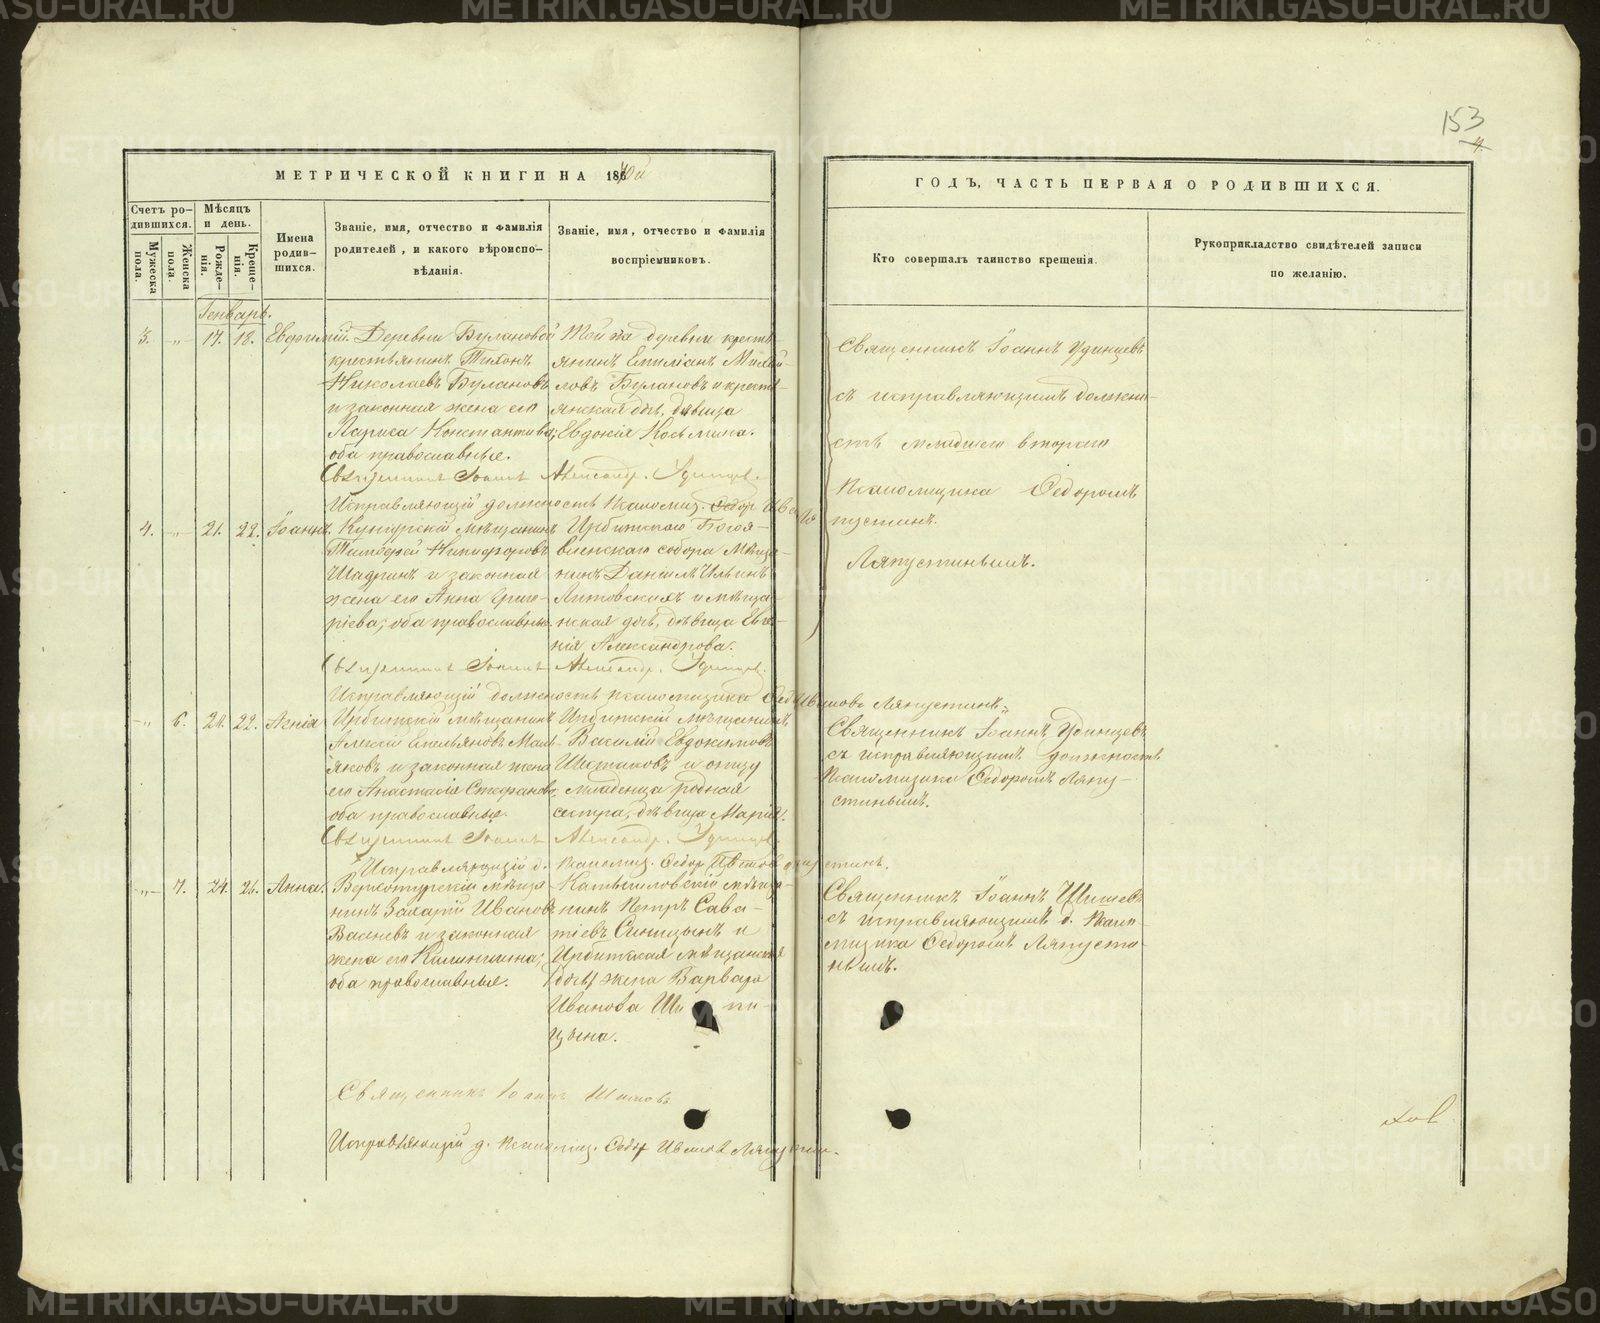 153
4.
МЕТРИЧЕСКОЙ КНИГИ НА 1870й
ГОДЪ, ЧАСТЬ ПЕРВАЯ О РОДИВШИХСЯ.
Счетъ ро-
дившихся.
Мужеска пола.
Женска пола.
Мѣсяцъ
и день.
Рожде-
нія.
Креще-
нія.
Имена
родив-
шихся.
Званіе, имя, отчество и фамилія
родителей, и какого вѣроиспо-
вѣданія.
Званіе, имя, отчество и фамилія
воспріемниковъ.
Кто совершалъ таинство крещенія.
Рукоприкладство свидѣтелей записи
по желанію.
Генварь.
3. -„- 17. 18. Евфимій.
Деревни Булановой
крестьянинъ Тихонъ
Николаевъ Булановъ
и законная жена его
Лариса Константинова;
оба православные.
Той же деревни кресть-
янинъ Емиліанъ Михай-
ловъ Булановъ и кресть-
янская дочь, дѣвица
Евдокія Косьмина.
Священникъ Іоаннъ Удинцевъ
съ исправляющимъ должно-
сть младшего втораго
псаломщика Ѳедоромъ
Ляпустинымъ.
Священникъ Іоаннъ Александр. Удинцев.
Исправляющій должность псаломщ. Ѳедор Ивано
пустинъ.
4. -„- 21. 22. Іоаннъ.
Кунгурскій мѣщанинъ
Тимоѳей Никифоровъ
Шадринъ и законная
жена его Анна Григо-
ріева; оба православные.
Ирбитскаго Богоя-
вленскаго собора мѣща-
нинъ Даніилъ Ильинъ
Литовскихъ и мѣща-
нская дочь, дѣвица Евге-
нія Александрова.
Священникъ Іоаннъ Александр. Удинцев.
Исправляющій должность псаломщика Ѳед. Ивановъ Ляпустинъ.
-„- 6. 21. 22. Агнія
Ирбитскій мѣщанинъ
Алексій Емельяновъ
и законная жена
его Анастасія Стефанова,
оба православные.
Ирбитскій мѣщанинъ
Василій Евдокимовъ
Шестаковъ и отцу
младенца родная
сестра, дѣвица Марія.
Священникъ Іоаннъ Удинцевъ
съ исправляющимъ должность
псаломщика Ѳедоромъ Ляпу-
стинымъ.
Священникъ Іоаннъ Александр. Удинцев.
Исправляющій д. псаломщ. Ѳедор Ивановъ Ляпустинъ.
-„- 7. 24. 26. Анна.
Верхотурскій мѣща-
нинъ Захарій Ивановъ
Васневъ и законная
жена его Калиннина;
оба православные.
Камышловскій мѣща-
нинъ Петръ Сава-
тіевъ Синицынъ и
Ирбитская мѣщанская
жена Варвара
Иванова Ши пи-
цына.
Священникъ Іоаннъ Шишевъ
съ исправляющимъ д. псало-
мщика Ѳедоромъ Ляпусти-
нымъ.
Священникъ Іоаннъ Шишевъ
Исправляющій д. псаломщ. Ѳедор Ивановъ Ляпустин.